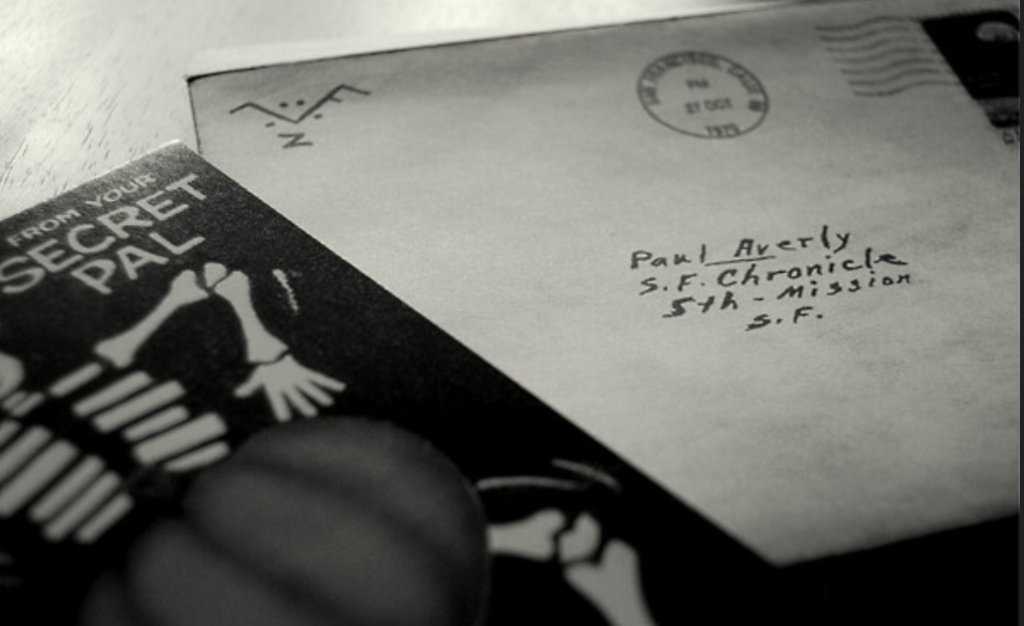 FROM YOUR
SECRET
PAL
SAN FRANCISCO, CALIF
PM
27 OCT
1970
Paul Averly
S.F. Chronicle
5th - Mission
S.F.